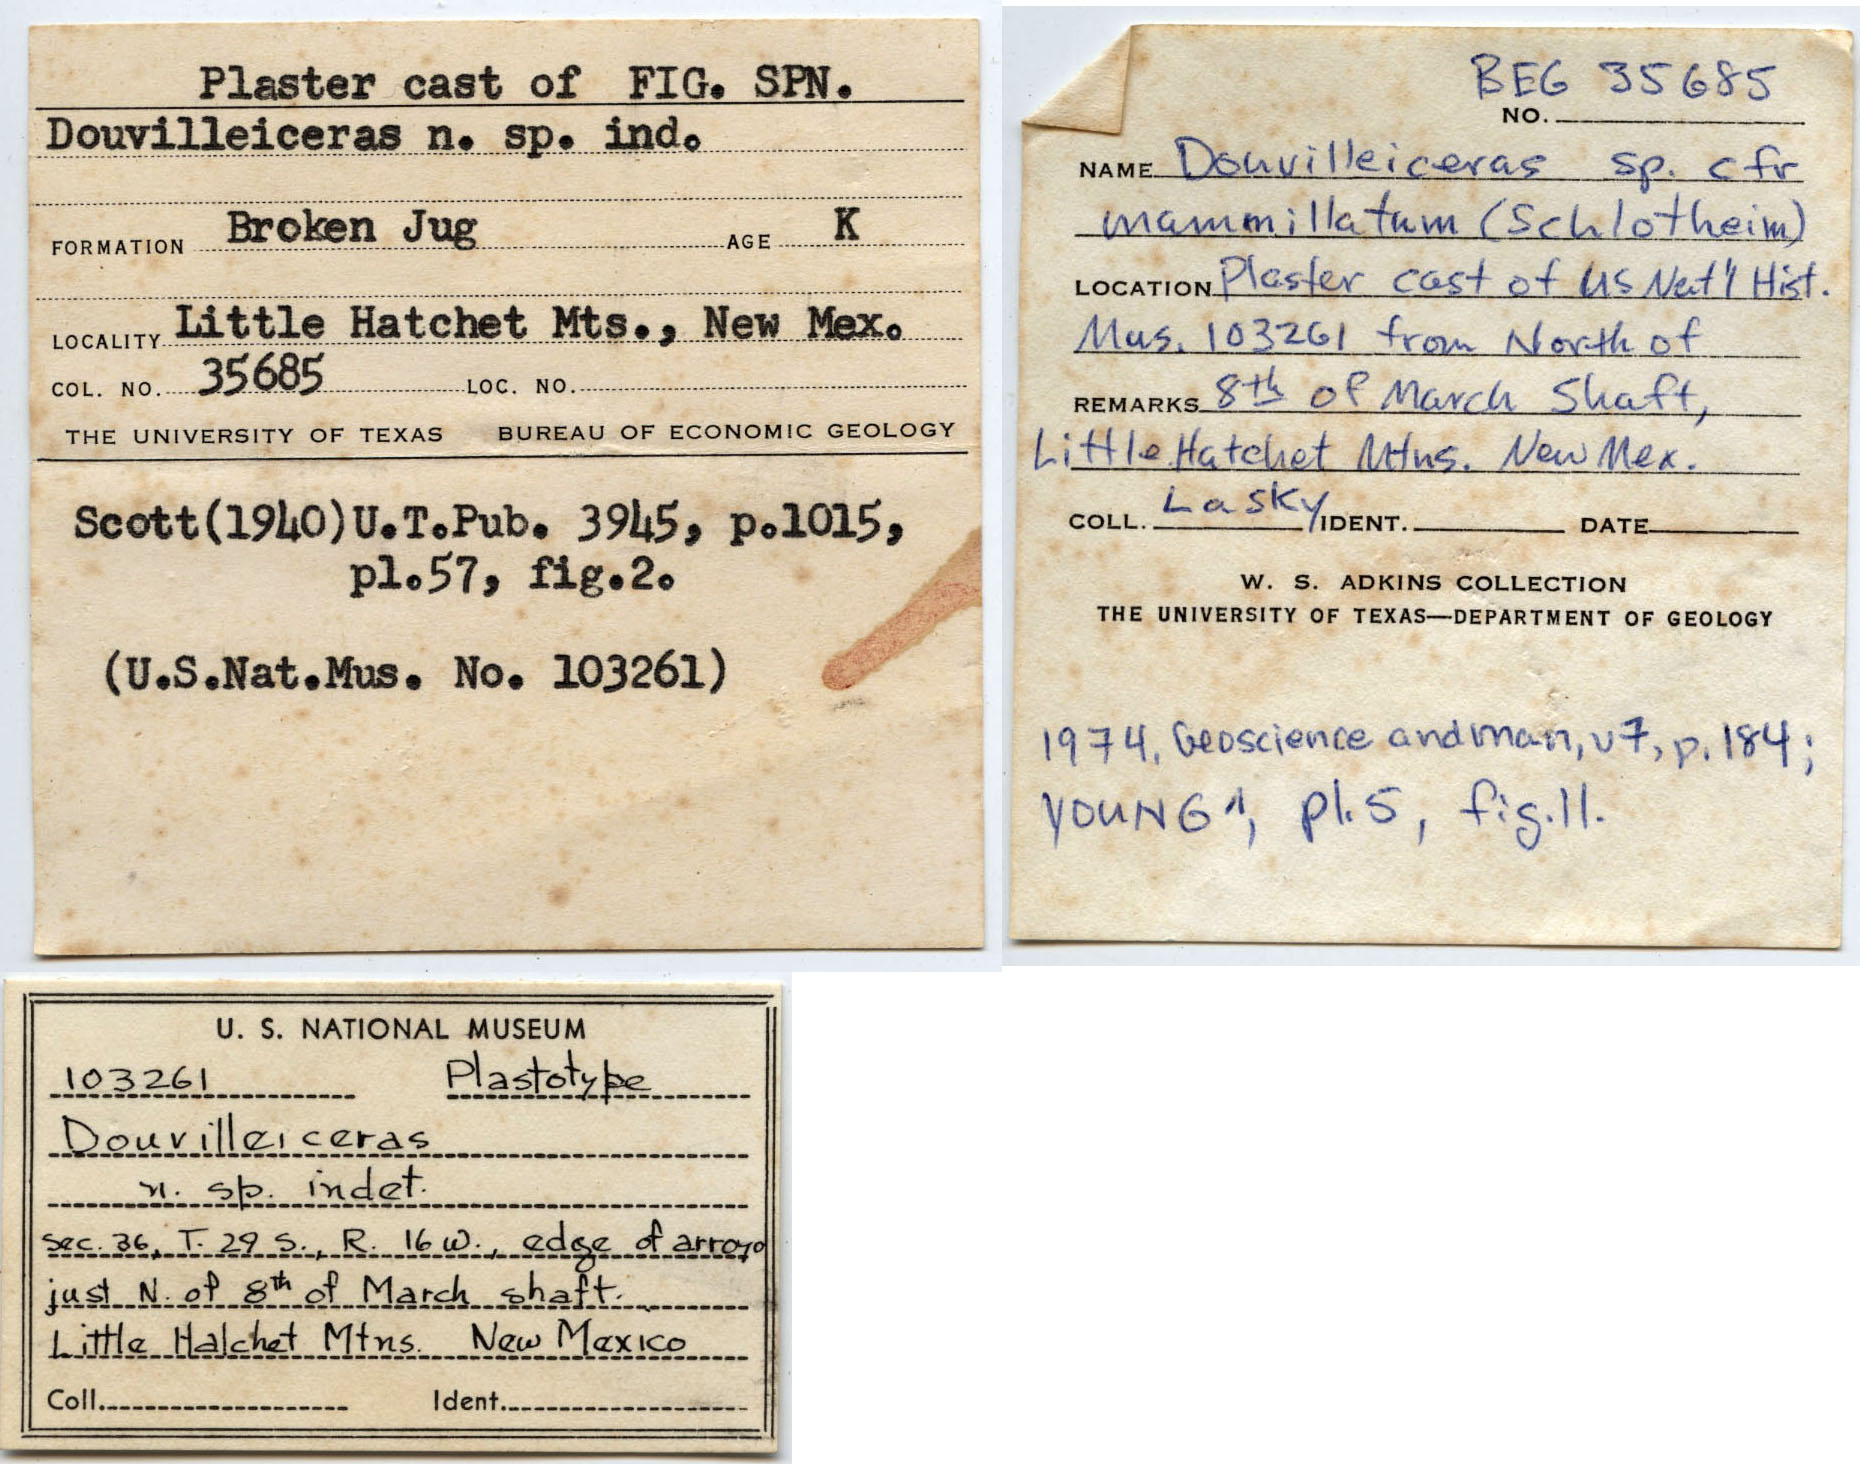 Plaster cast of FIG. SPN.
Douvilleiceras n. sp. ind.
FORMATION Broken Jug AGE K
LOCALITY Little Hatchet Mts., New Mex.
COL. NO. 35685 LOC. NO.
THE UNIVERSITY OF TEXAS BUREAU OF ECONOMIC GEOLOGY
Scott(1940)U.T.Pub. 3945, p.1015,
pl.57, fig.2.
(U.S.Nat.Mus. No. 103261)
BEG 35685
NO.
NAME Douvilleiceras sp. cfr
mammillatum (Schlotheim)
LOCATION Plaster cast of US Nat'l Hist.
Mus. 103261 from North of
REMARKS 8th of March Shaft,
Little Hatchet Mtns. New Mex.
COLL. Lasky IDENT. DATE
W. S. ADKINS COLLECTION
THE UNIVERSITY OF TEXAS—DEPARTMENT OF GEOLOGY
1974, Geoscience and man, v7, p. 184;
YOUNG, pl. 5, fig. 11.
U. S. NATIONAL MUSEUM
103261 Plastotype
Douvilleiceras
n. sp. indet.
sec. 36, T. 29 S., R. 16 W., edge of arroyo
just N. of 8th of March shaft.
Little Hatchet Mtns. New Mexico
Coll. Ident.